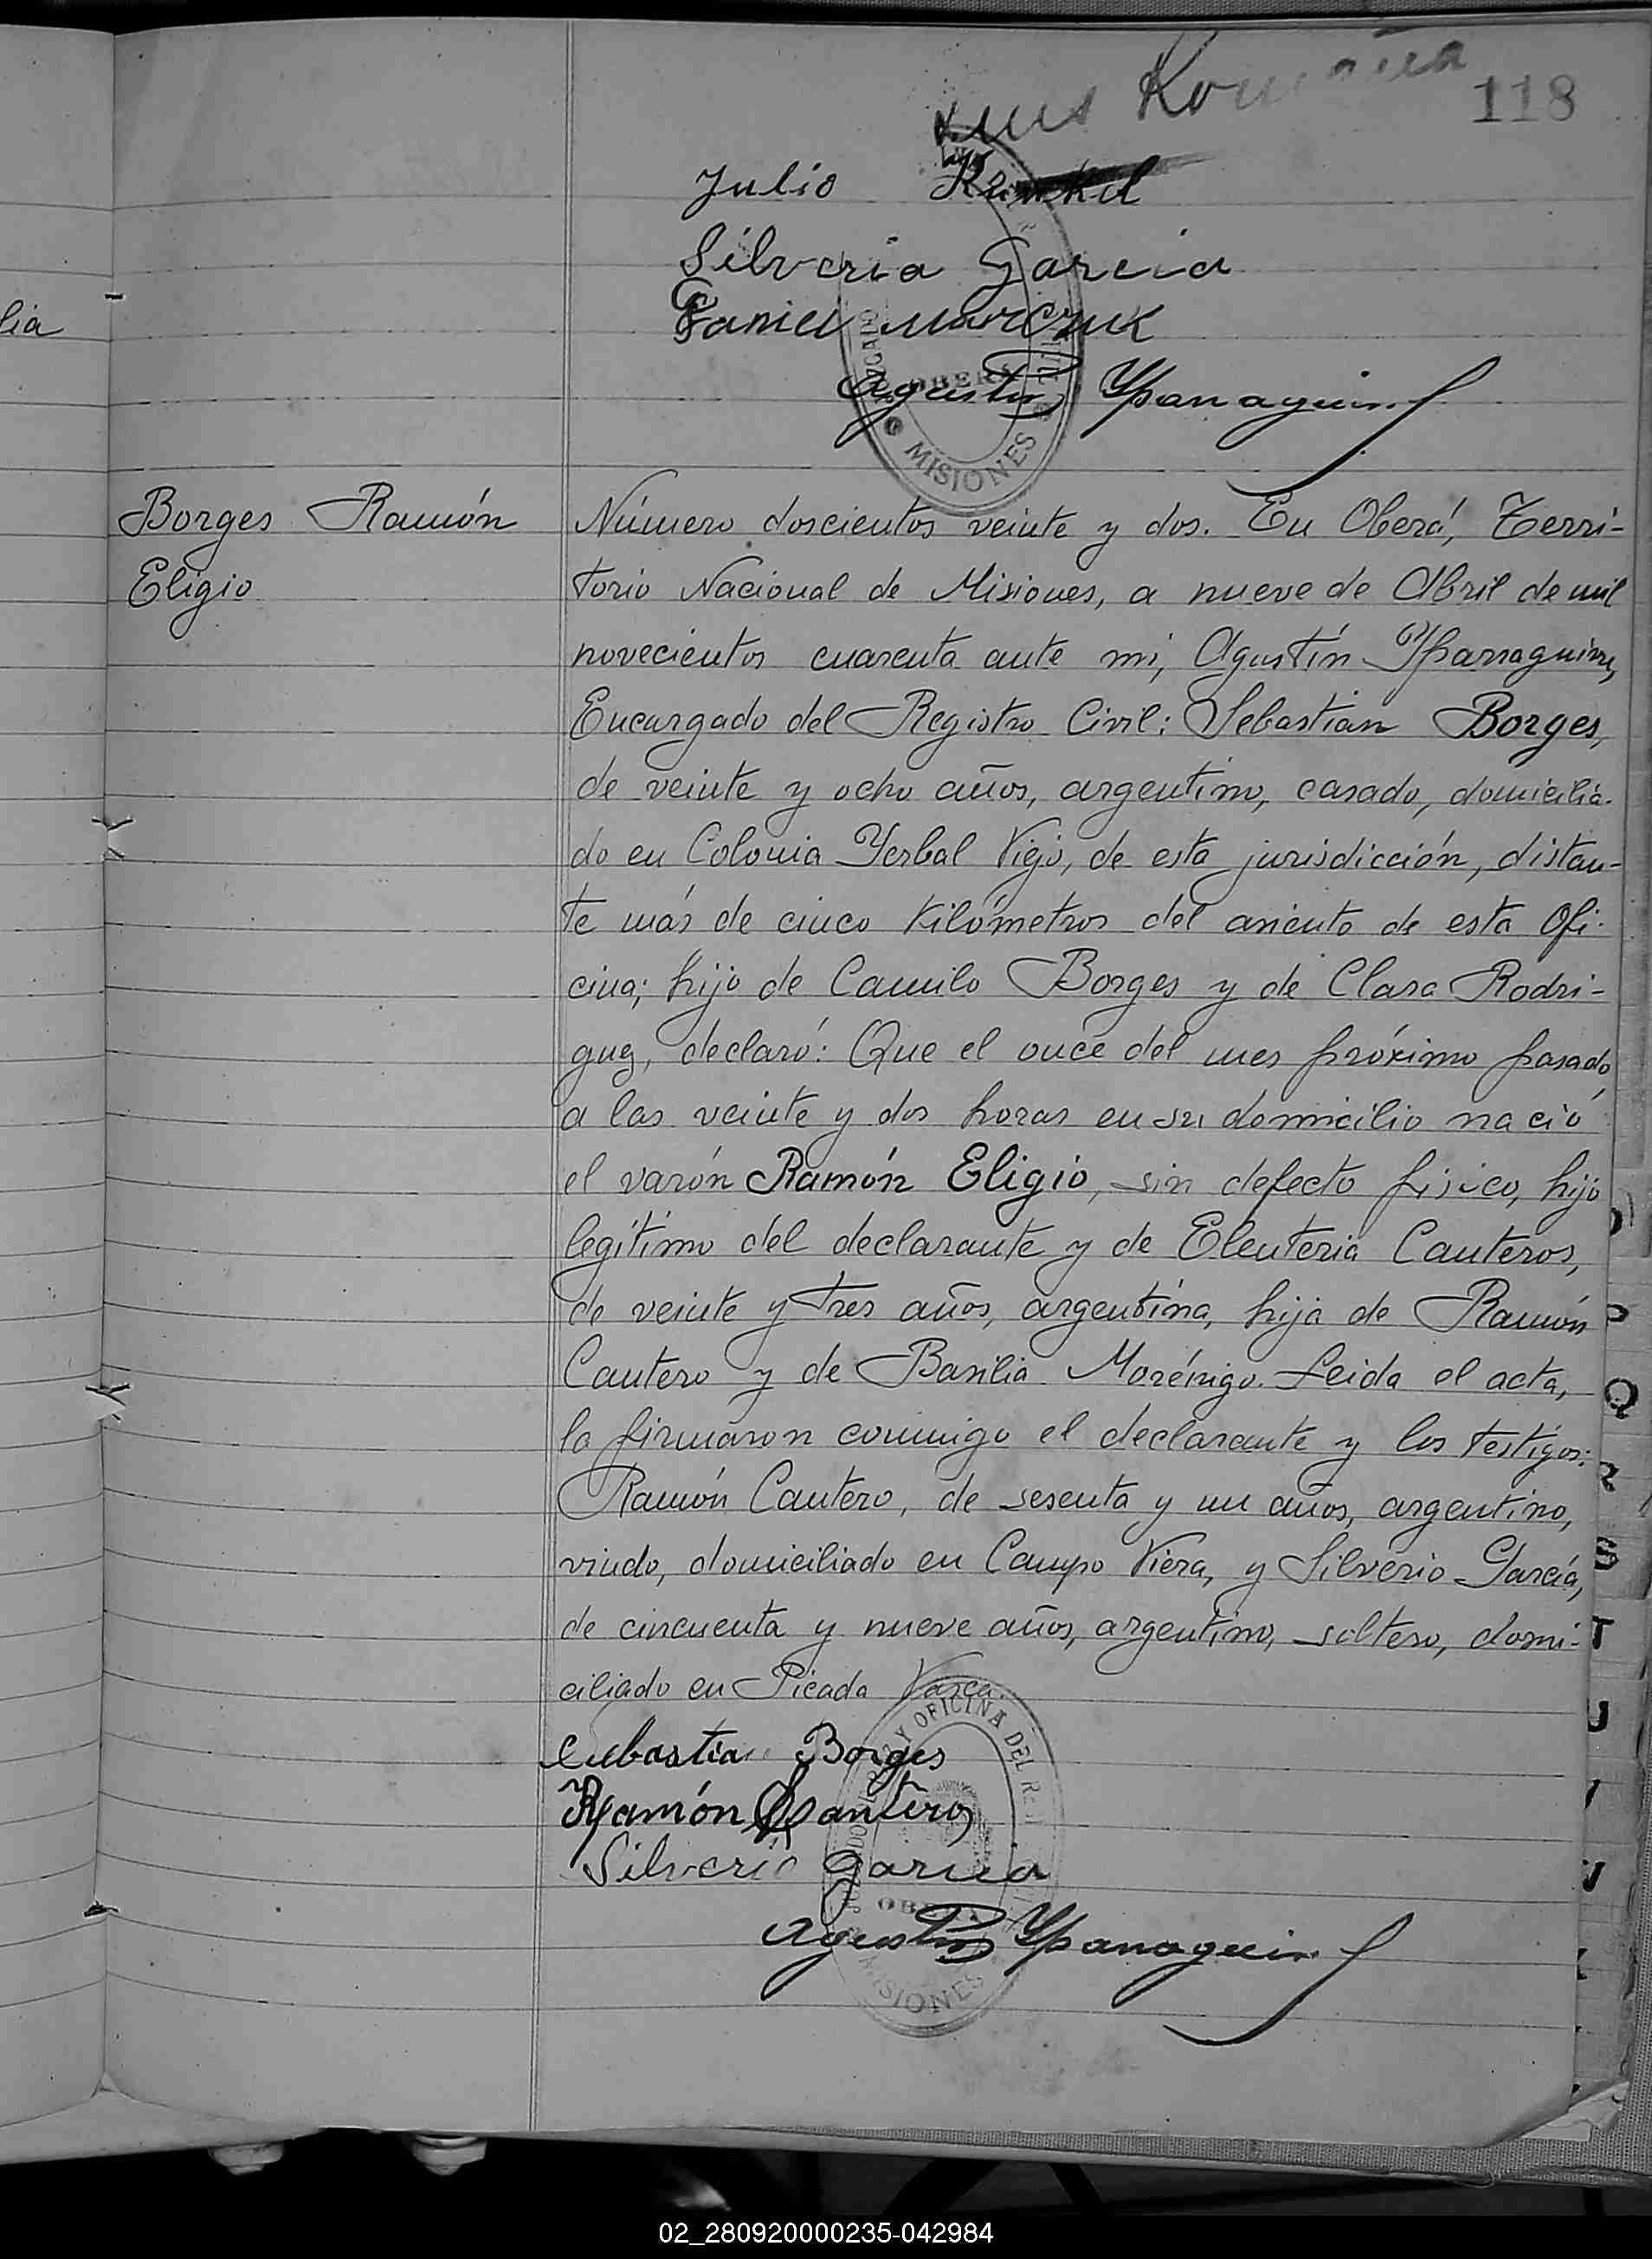 118
Julio
Silverio Garcia
Daniel Marczuk
Agustín Yparraguirre
OBERÁ
MISIONES
lia
Borges Ramón
Eligio
Número doscientos veinte y dos. En Oberá, Terri-
torio Nacional de Misiones, a nueve de Abril de mil
novecientos cuarenta ante mi, Agustín Yparraguirre,
Encargado del Registro Civil: Sebastian Borges,
de veinte y ocho años, argentino, casado, domicilia-
do en Colonia Yerbal Viejo, de esta jurisdicción, distan-
te más de cinco kilómetros del asiento de esta Ofi-
cina; hijo de Camilo Borges y de Clara Rodri-
guez, declaró: Que el once del mes próximo pasado
a las veinte y dos horas en su domicilio nació
el varón Ramón Eligio, sin defecto fisico, hijo
legítimo del declarante y de Eleuteria Canteros,
de veinte y tres años, argentina, hija de Ramón
Cantero y de Basilia Morénigo. Leida el acta,
la firmaron conmigo el declarante y los testigos:
Ramón Cantero, de sesenta y un años, argentino,
viudo, domiciliado en Campo Viera, y Silverio García,
de cincuenta y nueve años, argentino, soltero, domi-
ciliado en Picada Vasca.
Sebastian Borges
Ramón Canteros
Silverio Garcia
Agustín Yparraguirre
Y OFICINA DEL
OBERÁ
MISIONES
P
Q
R
S
T
U
02_280920000235-042984